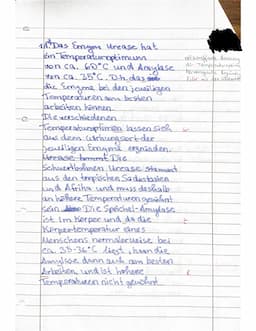 1.) Das Enzym Urease hat
ein Temperaturoptimum
von ca. 60°C und Amylase
von ca. 35°C. D.h. das
die Enzyme bei den jeweiligen
Temperaturen am besten
arbeiten können.
Die verschiedenen
Temperaturoptimen lassen sich
aus dem Wirkungsort der
jeweiligen Enzyme ergründen.
Urease kommt Die
Schwertbohnen Urease stammt
aus den tropischen Südostasien
und Afrika und muss deshalb
an höhere Temperaturen gewöhnt
sein. Die Speichel-Amylase
ist im Körper und da die
Körpertemperatur eines
Menschens normalerweise bei
ca. 35-36°C liegt, kann die
Amylase dann auch am besten
Arbeiten, und ist höhere
Temperaturen nicht gewöhnt.